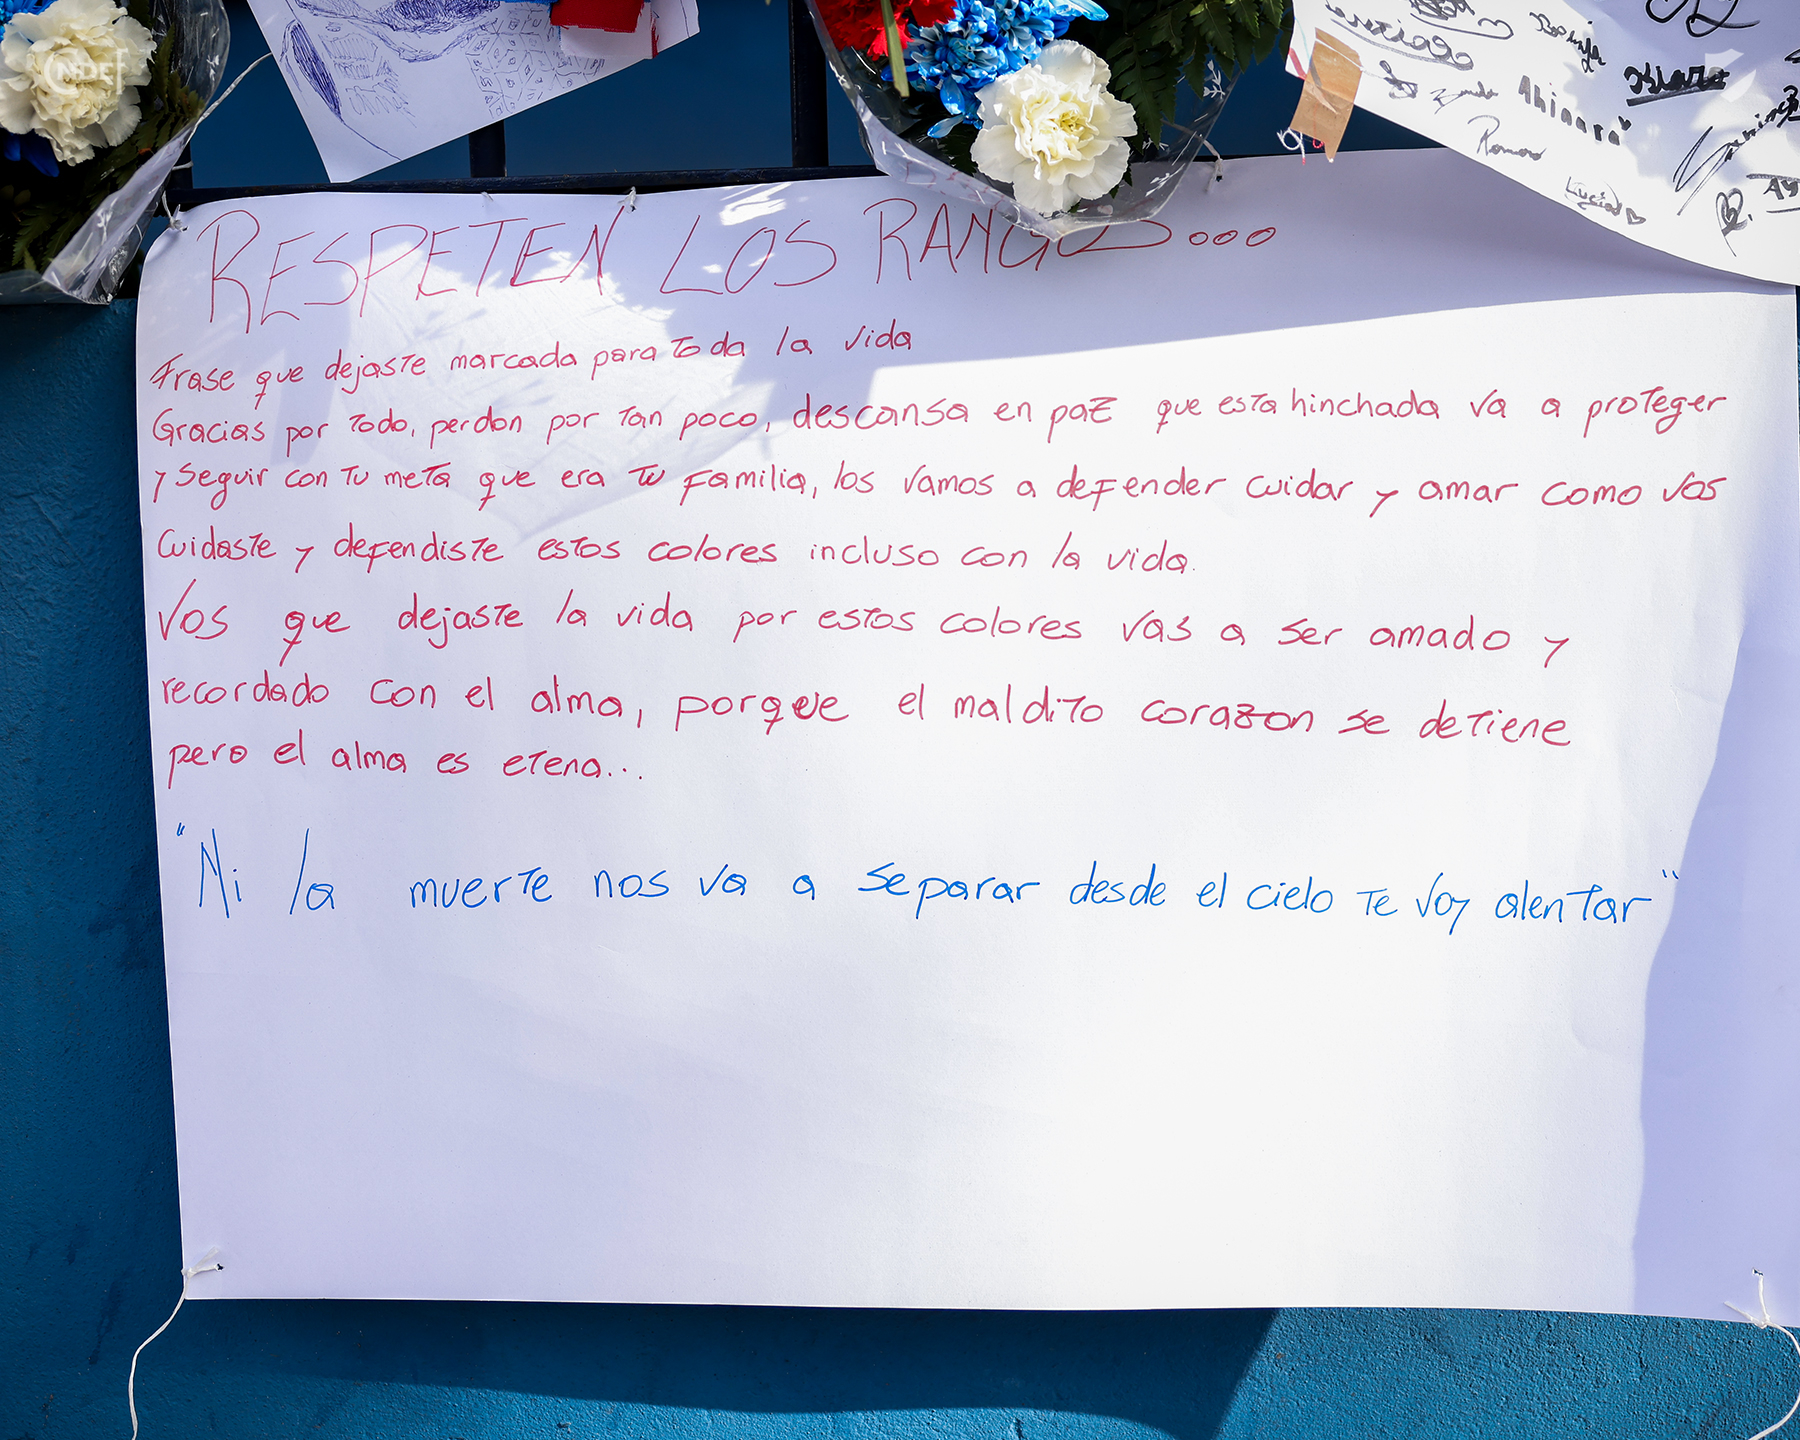 NDE
Kiara
Ahinara
Romero
Lucia
RESPETEN LOS RANGOS...
Frase que dejaste marcada para toda la vida
Gracias por todo, perdon por tan poco, descansa en paz que esta hinchada va a proteger
y seguir con tu meta que era tu familia, los vamos a defender cuidar y amar como vos
cuidaste y defendiste estos colores incluso con la vida.
Vos que dejaste la vida por estos colores vas a ser amado y
recordado con el alma, porque el maldito corazon se detiene
pero el alma es etena...
"Ni la muerte nos va a separar desde el cielo te voy alentar"